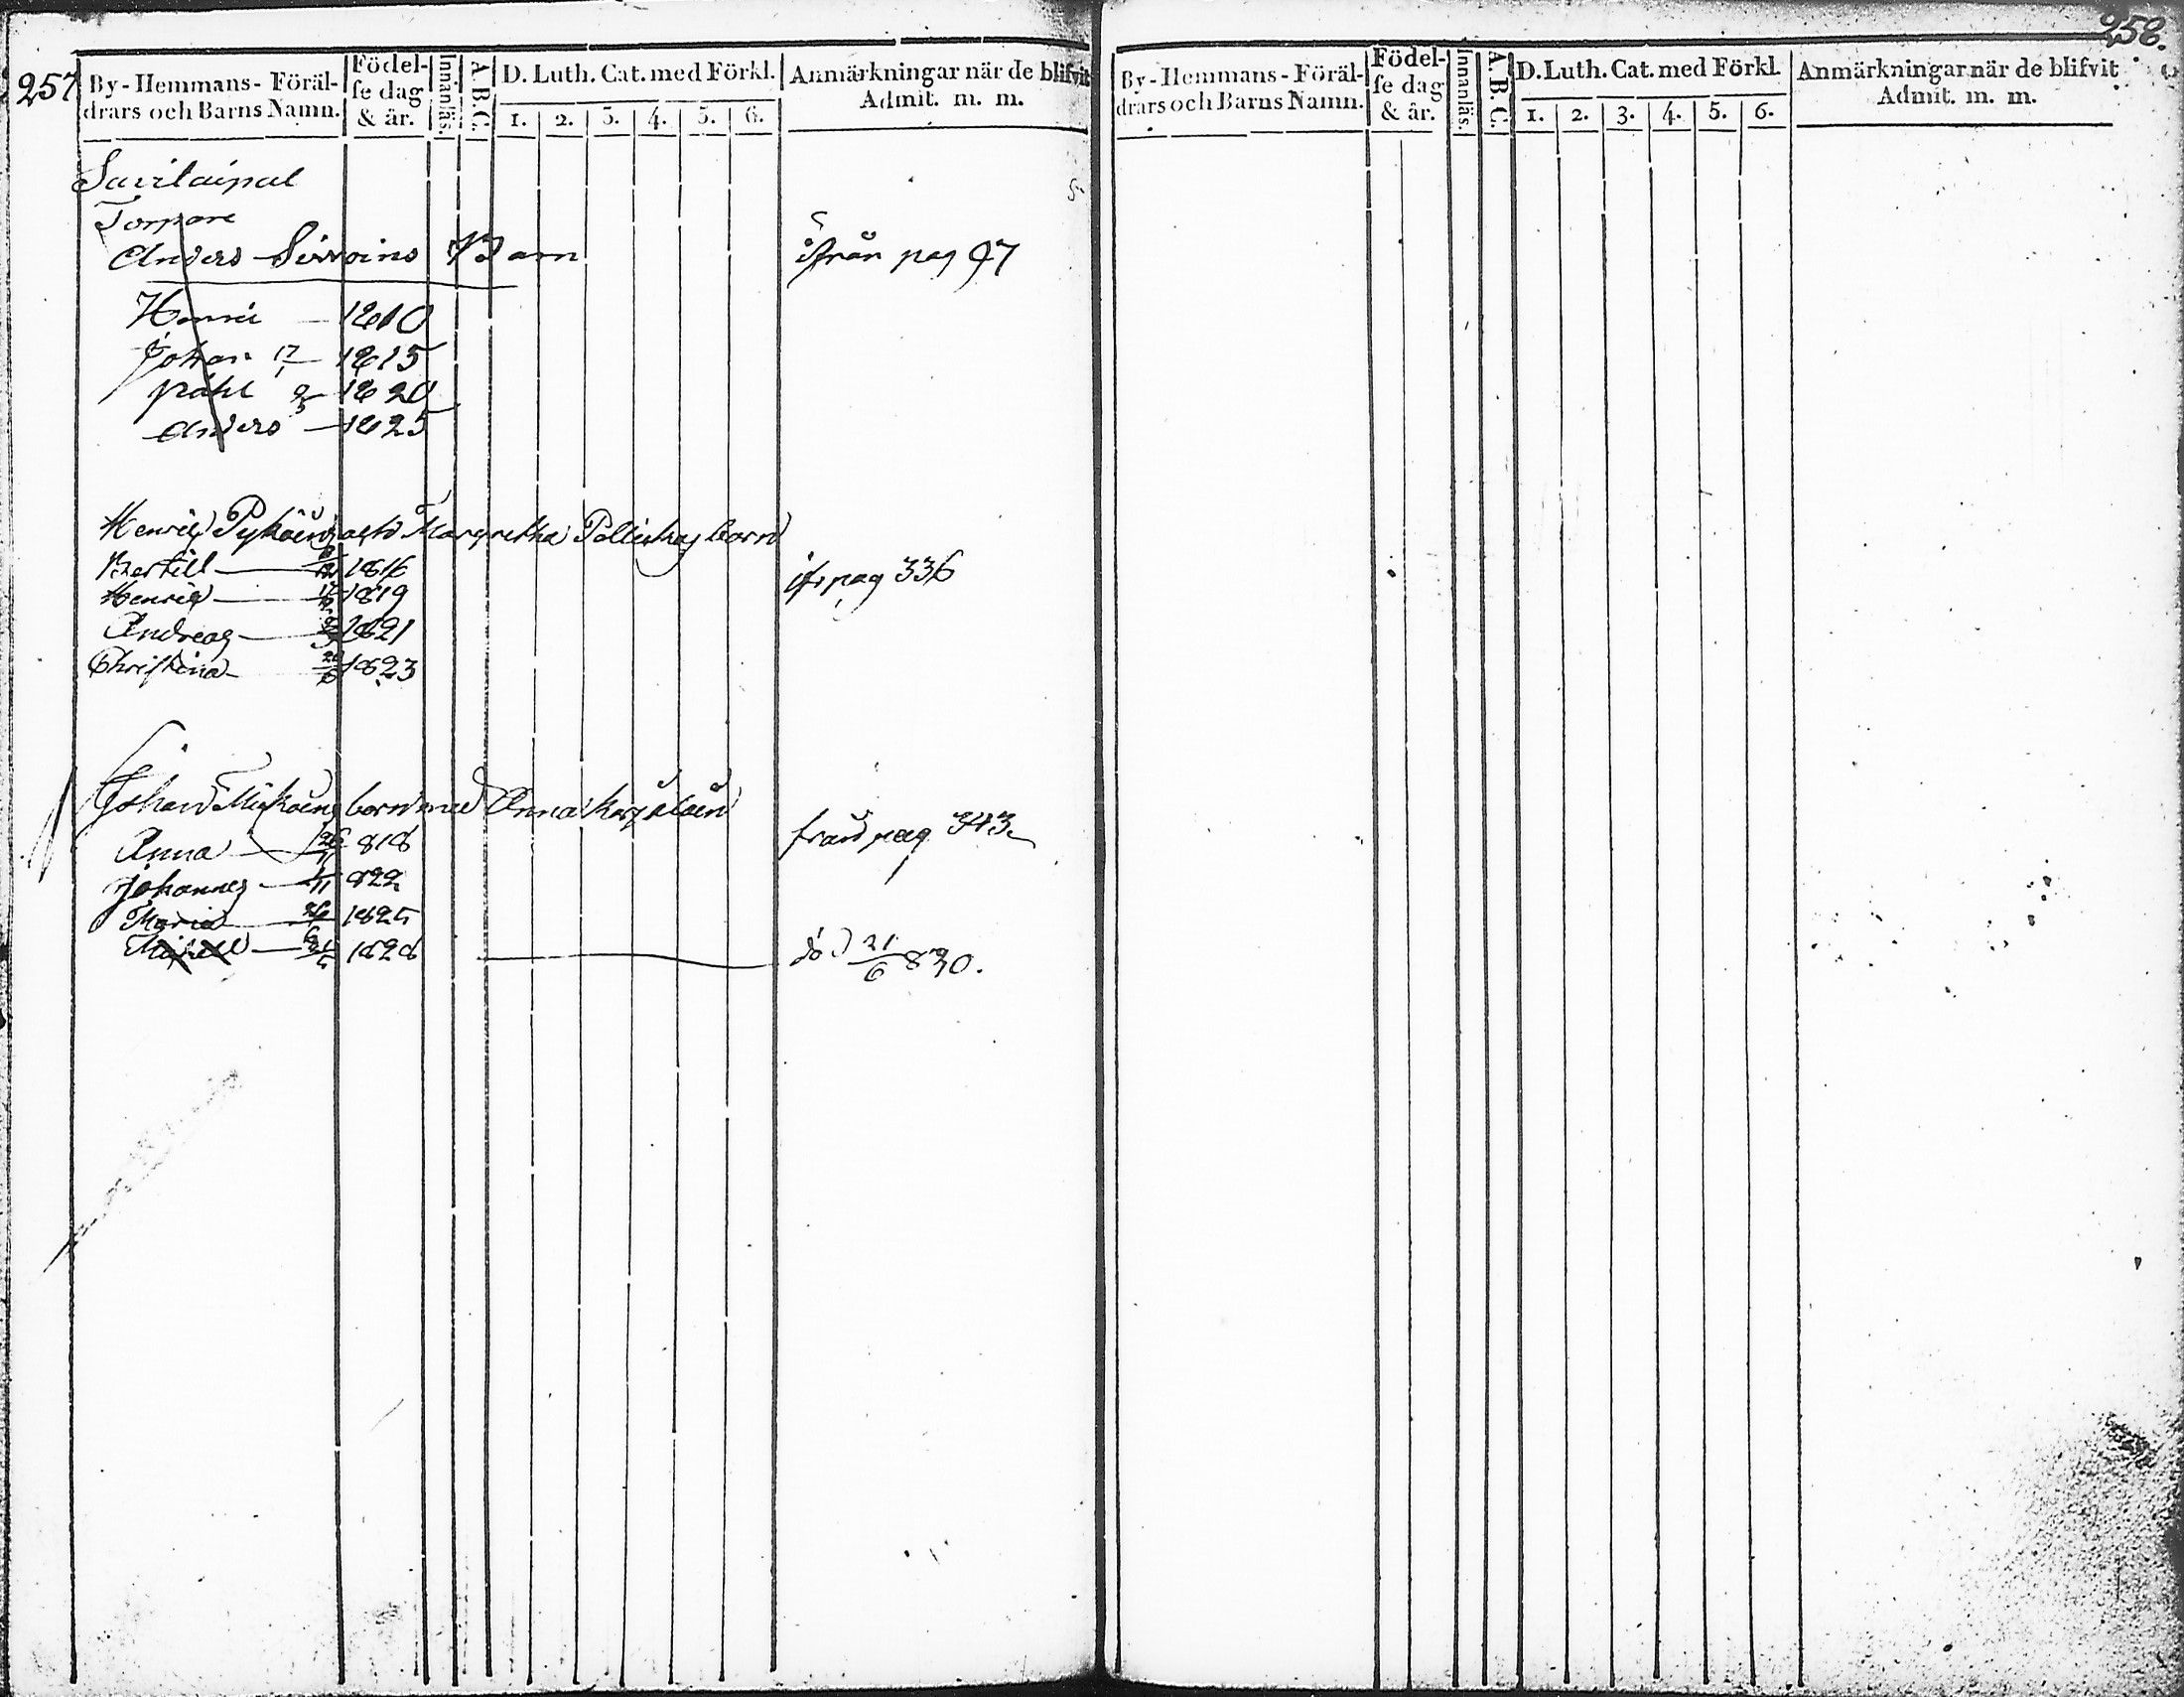 257
By-Hemmans-Föräl-
drars och Barns Namn.
Födel-
se dag
& år.
Innanläs.
A.B.C.
D. Luth. Cat. med Förkl.
1. 2. 3. 4. 5. 6.
Anmärkningar när de blifvit
Admit. m. m.
Savitaipal
Torpare
Anders Sirvoins Barn ifrån pag 97
Henric 1810
Johan 17 1815
Påhl 1820
Anders 1825
Henric Pyköin och Margretha barn
Bertill 1816 ifr pag 336
Henric 1819
Andreas 1821
Christina 1823
Johan barn med Anna
Anna 26 818 från pag 343
Johannes 822
Maria 1825
1828 död 21/6 830.
258.
By-Hemmans-Föräl-
drars och Barns Namn.
Födel-
se dag
& år.
Innanläs.
A.B.C.
D. Luth. Cat. med Förkl.
1. 2. 3. 4. 5. 6.
Anmärkningar när de blifvit
Admit. m. m.